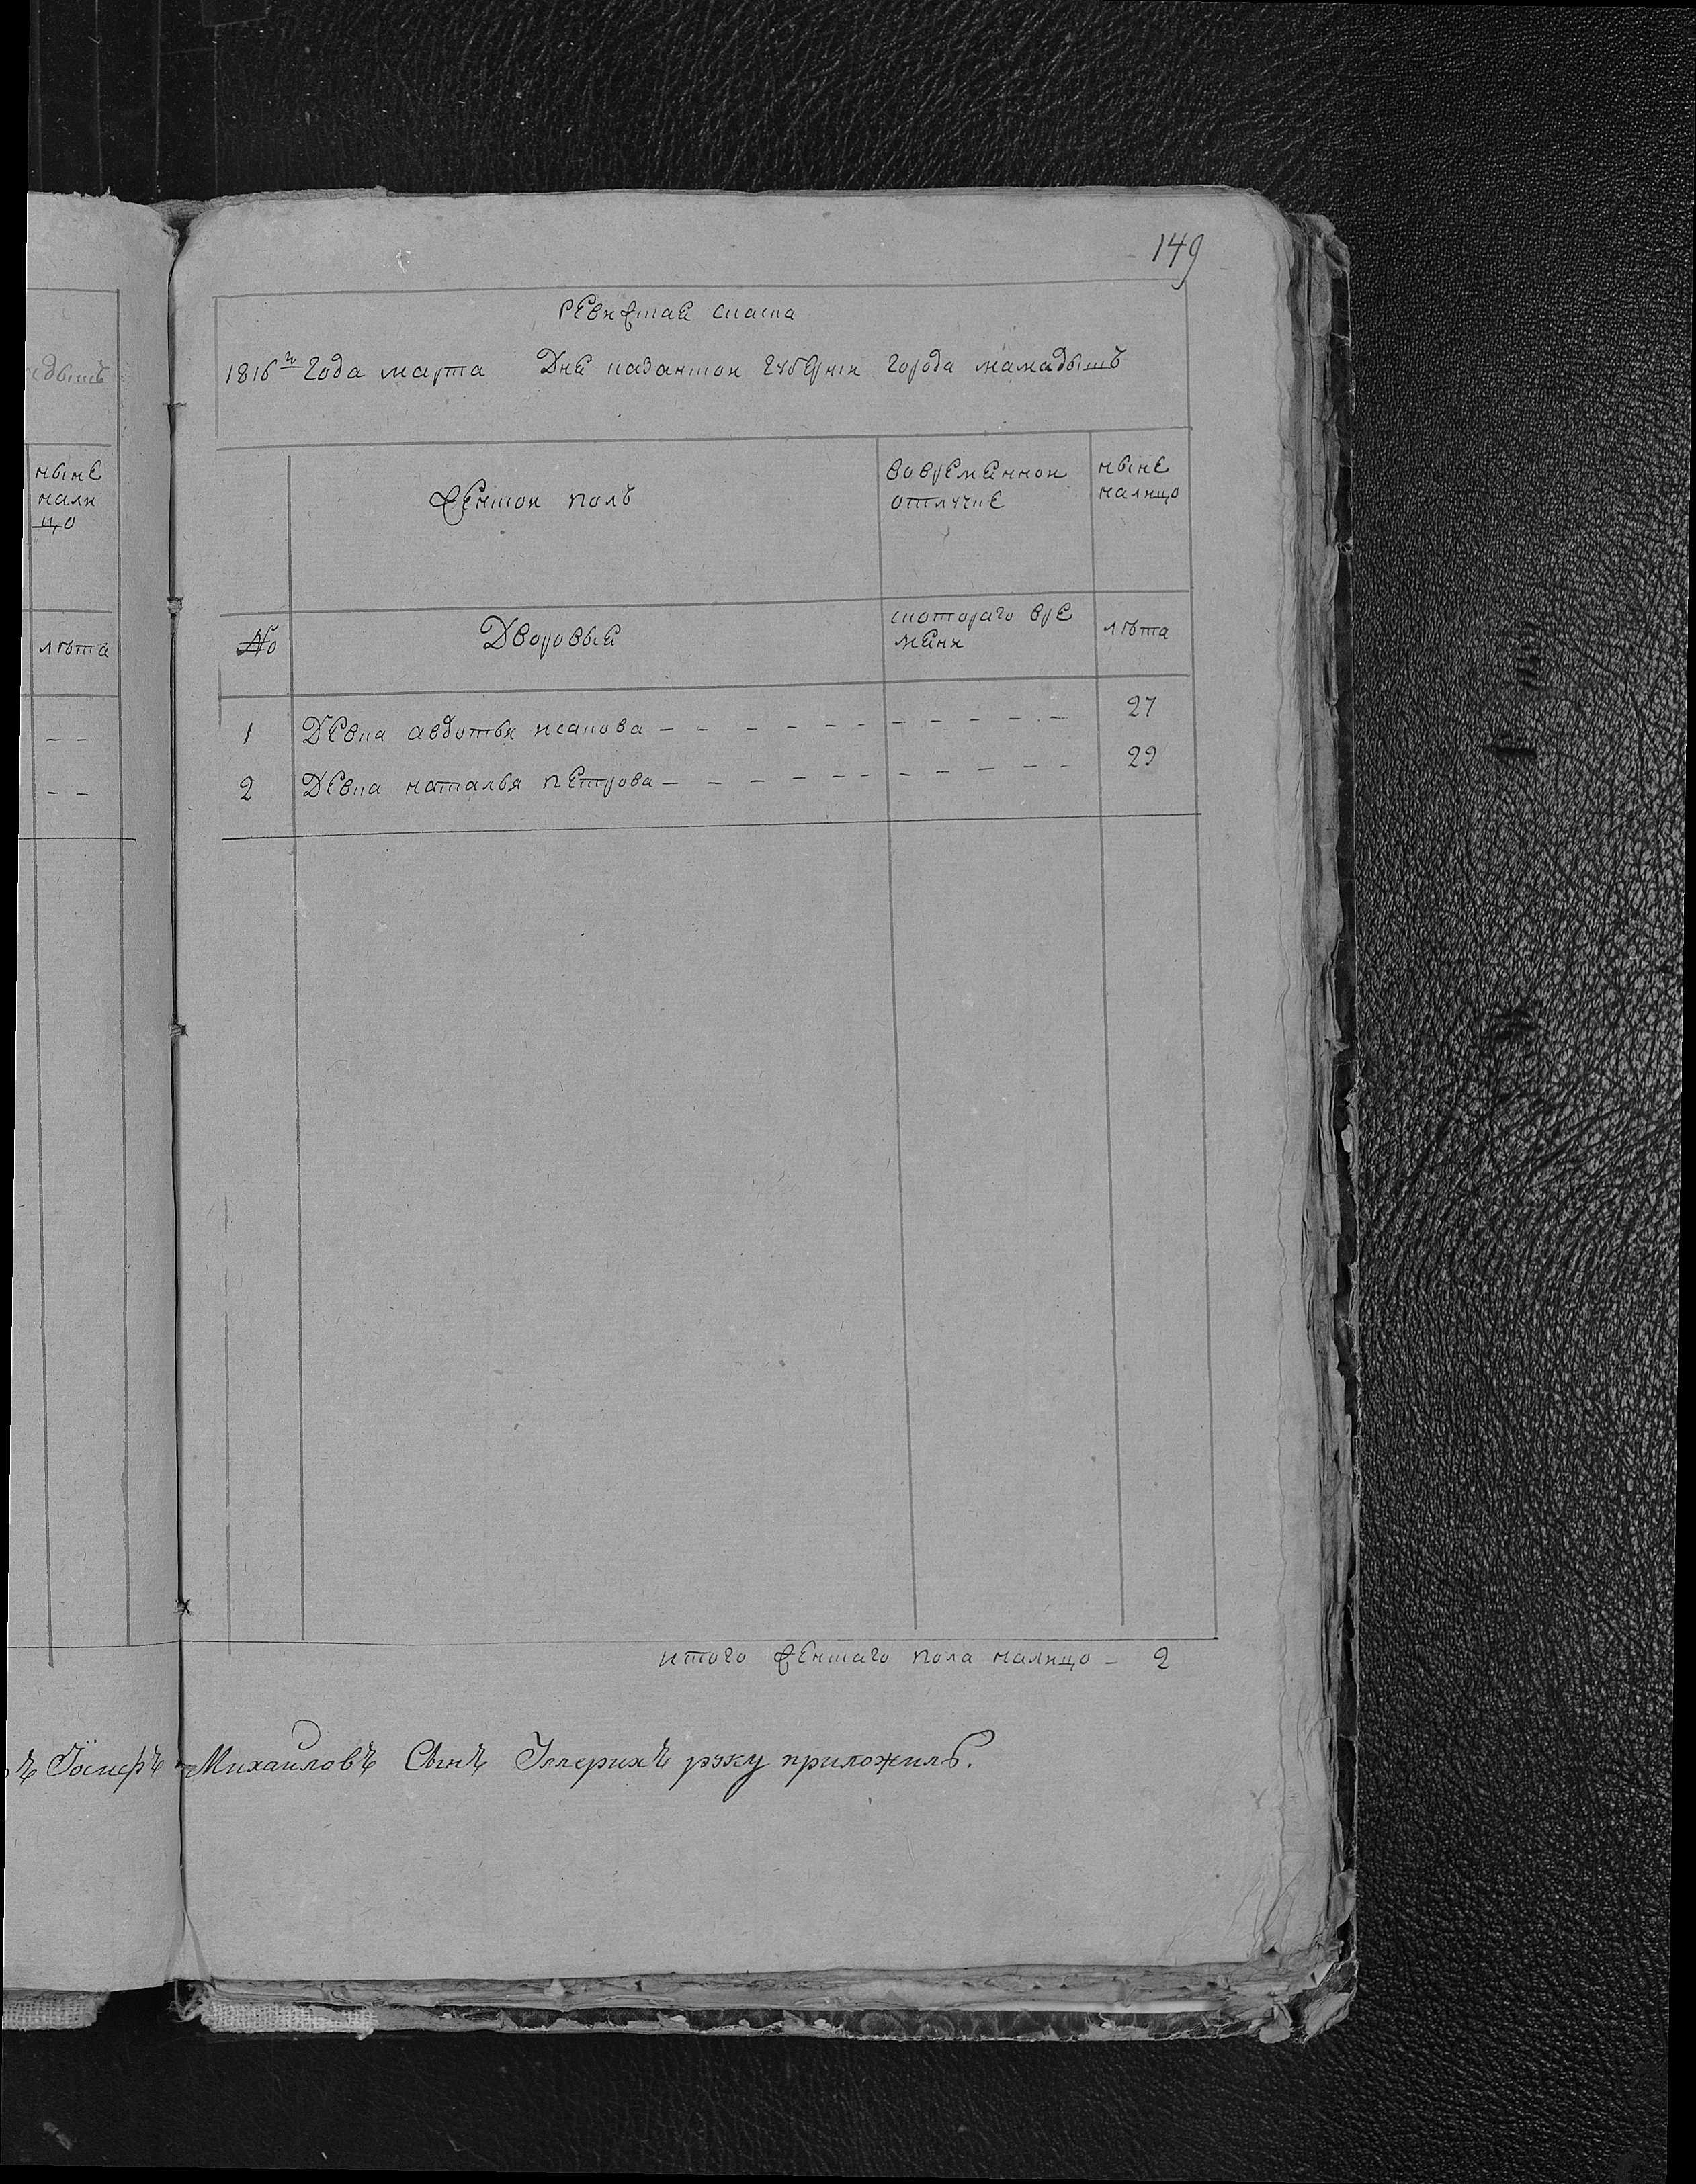 149
ревижская скаска
1816го года марта дне казанской губернии города мамадышъ
женской полъ
вовременной отлучке
ныне налицо
№
Дворовые
скотораго вре мени
лѣта
1 Девка авдотья исакова — — — — — — — — — — — 27
2 Девка наталья петрова — — — — — — — — — — — 29
итого женскаго пола налицо — 2
Іосифъ Михайловъ Сынъ руку приложилъ.
ныне нали цо
лѣта
— —
— —